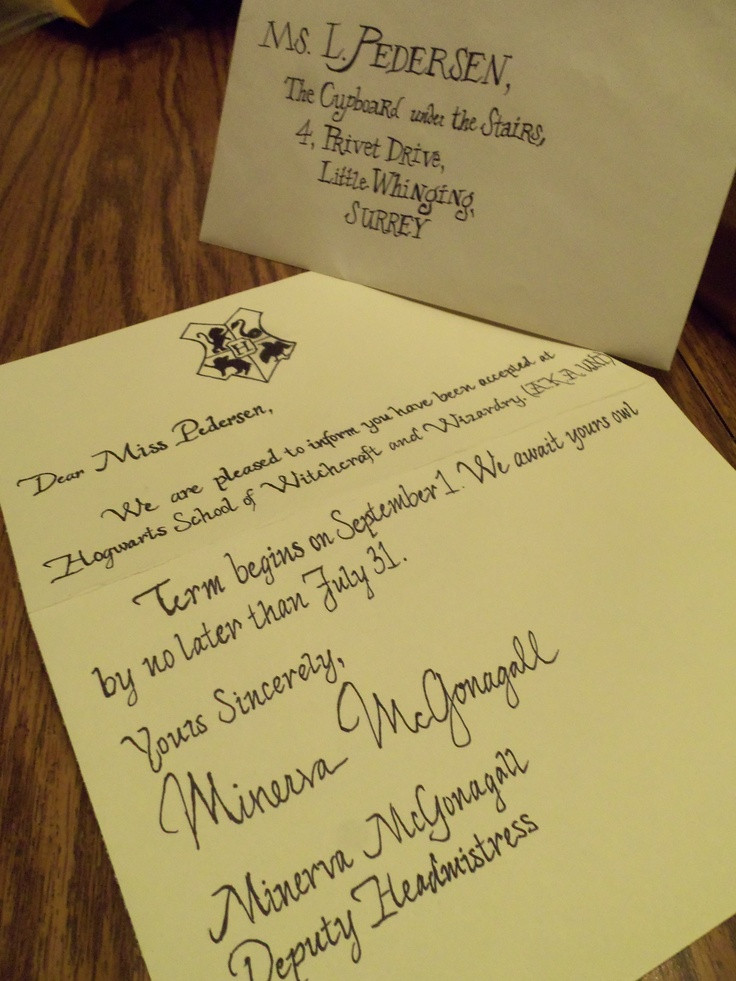 Ms. L. PEDERSEN,
The Cupboard under the Stairs,
4, Privet Drive,
Little Whinging,
SURREY
H
Dear Miss Pedersen,
We are pleased to inform you have been accepted at
Hogwarts School of Witchcraft and Wizardry. (AKA
Term begins on September 1. We await yours owl
by no later than July 31.
Yours Sincerely,
Minerva McGonagall
Minerva McGonagall
Deputy Headmistress